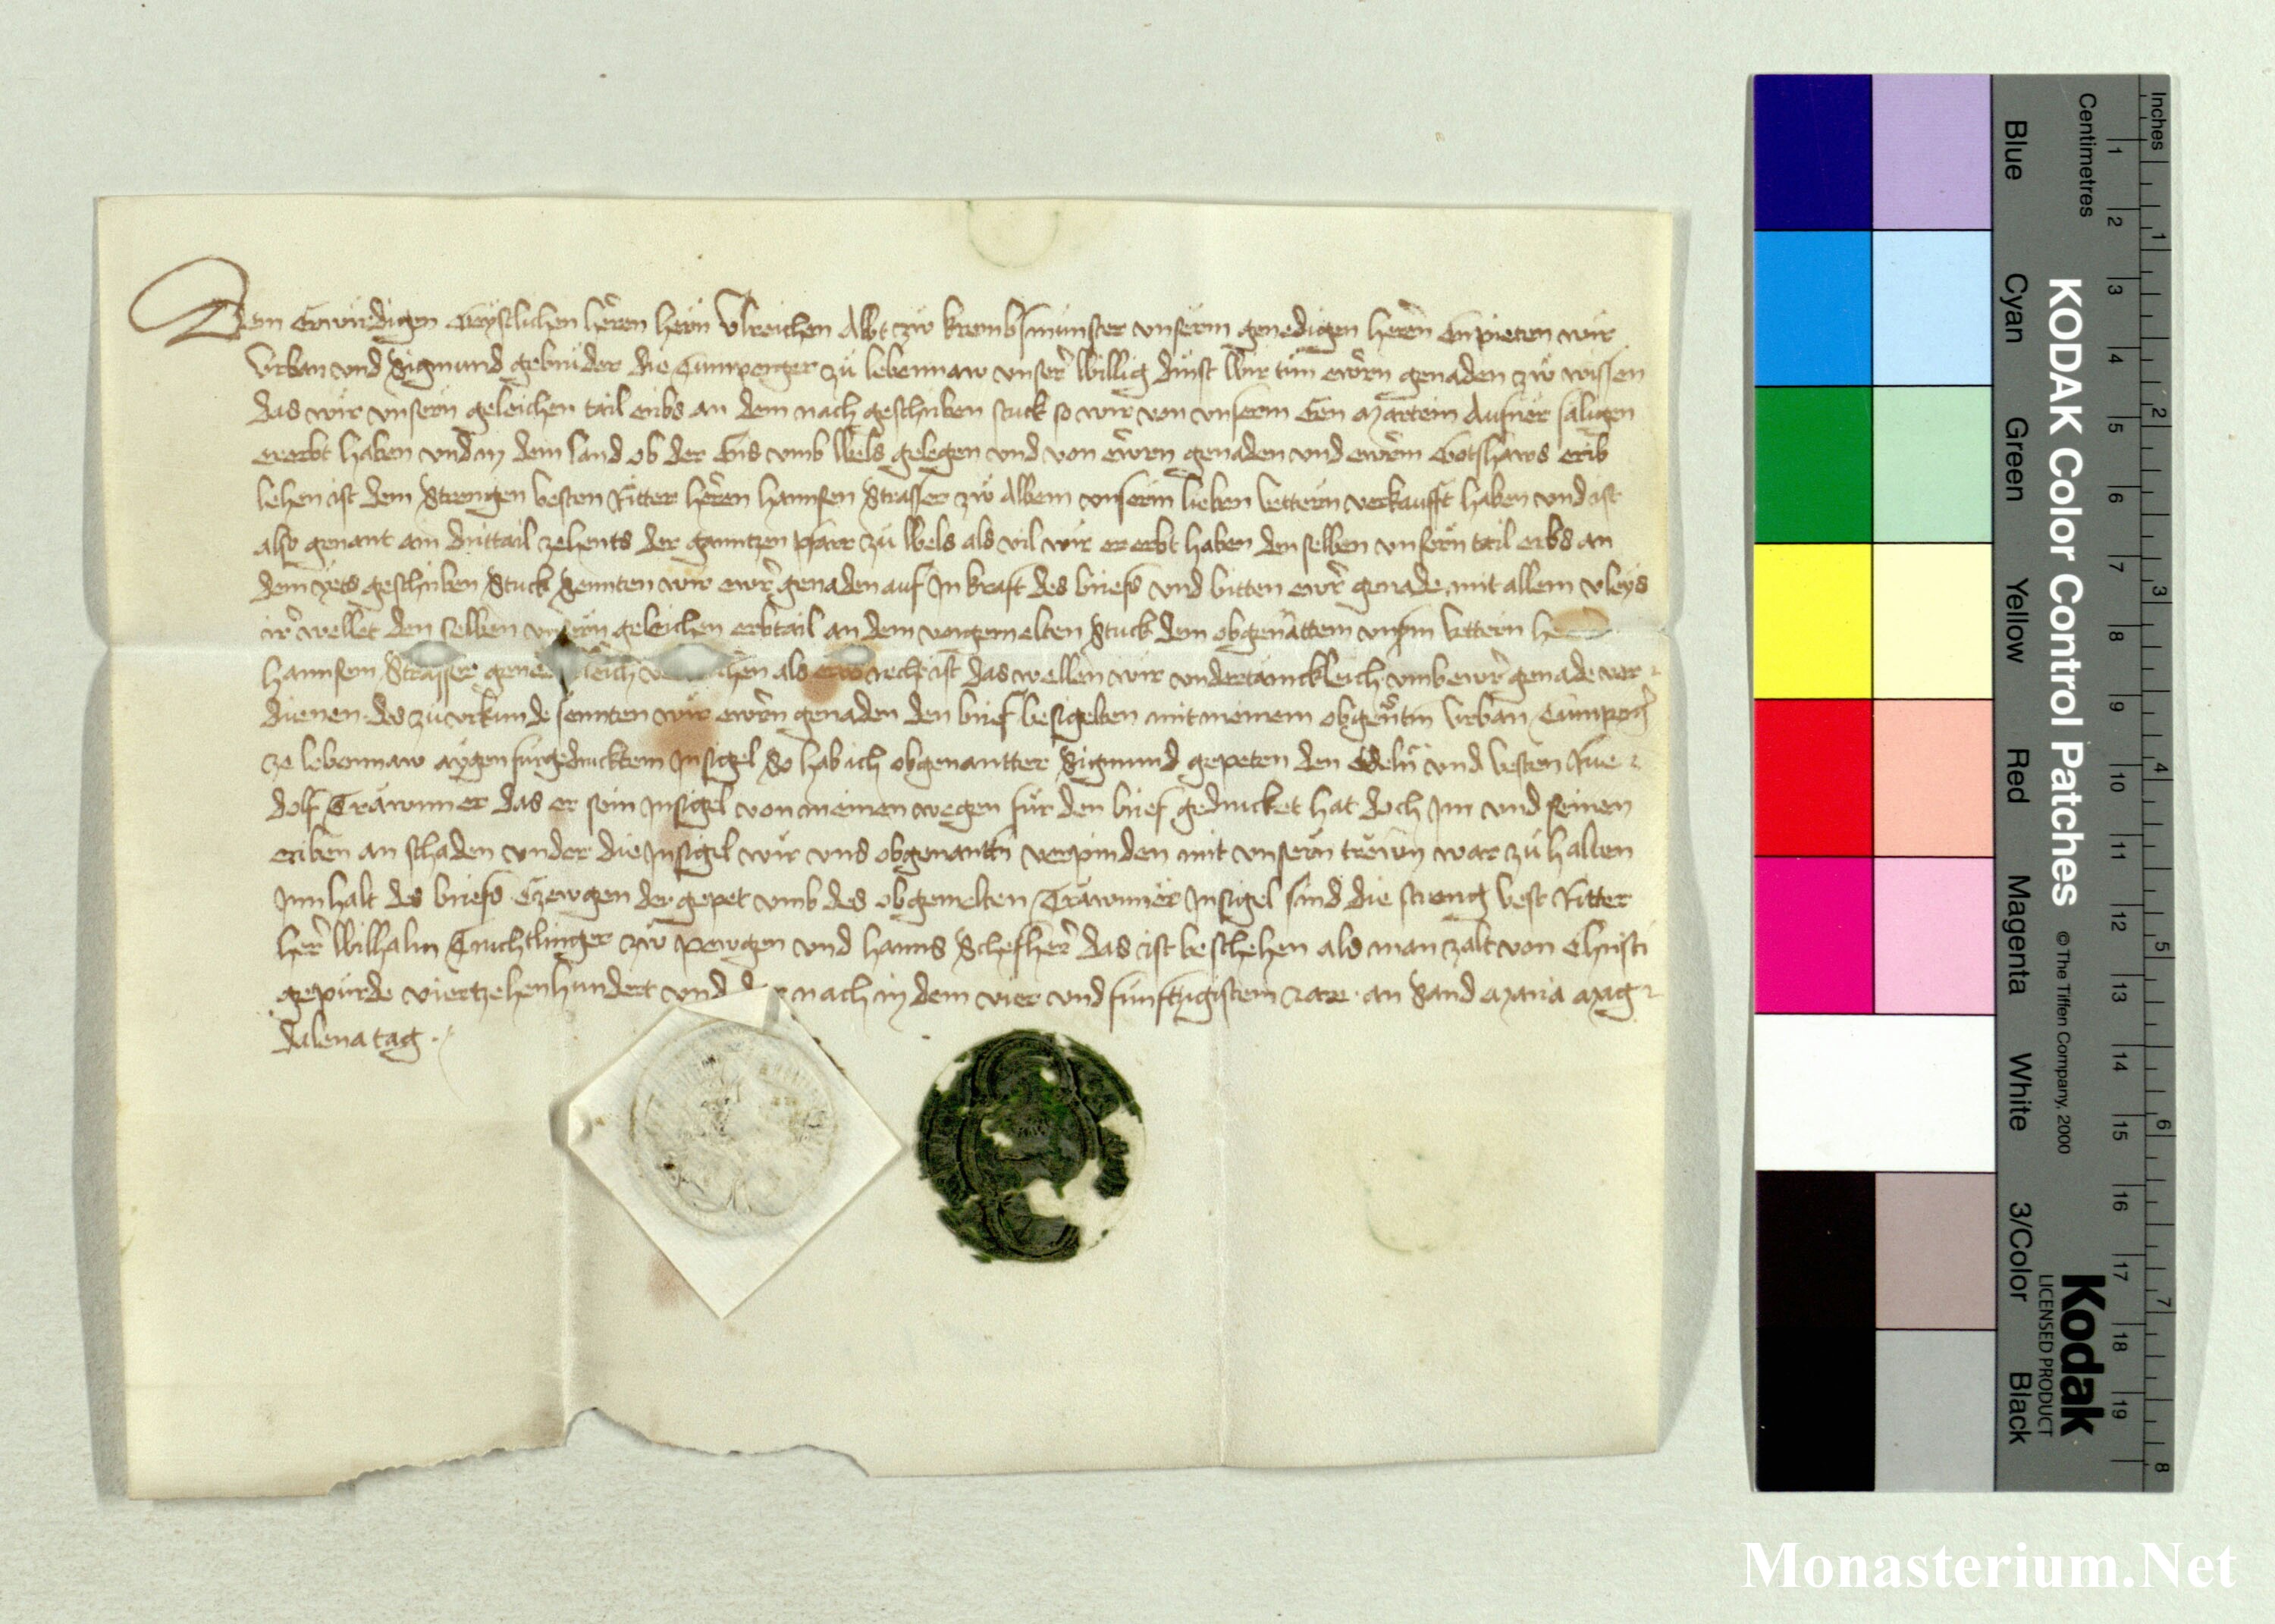 Dem Erwirdigen Geystlichen herren hern Vlreichen Abbt zw krembsmunster vnserm genedigen herren Enpieten wir
Vrban vnd Sigmund gebruder die zu lebennaw vnser willig dinst Wir tun ewrn genaden zw wissen
das wir vnsern geleichen tail eribs an dem nach geschriben stuck so wir von vnserm Een Martein saligen
ererbt haben vnd in dem land ob der Ens vmb Wels gelegen vnd von ewrn genaden vnd ewrm Gotshaws erib
lehen ist dem Strengen vesten Ritter herren hannsen Strasser zw Albem vnserm lieben vettern verkaufft haben vnd ist
also genant ain drittail zehents der ganntzen pfarr zu Wels als vil wir ererbt haben denselben vnsern tail erbs an
dem yets geschriben Stuck Sennten wir ewrn genaden auf In kraft des briefs vnd bitten ewr genade mit allem vleys
ir wellet den selben vnsern geleichen erbtail an dem vorgemelten Stuck dem obgenanttem vnserm vettern
hannsem Strasser als recht ist das wellen wir vndertanickleich vmb ewr genade ver
dienen des zu vrkunde sennten wir ewrn genaden den brief besigelten mit meinem obgenantn Vrban
ze lebennaw aygen furgedrucktem Insigel So hab ich obgenantter Sigmund gepeten den Edeln vnd vesten Rue
dolf Trawnner das er sein Insigel von meinen wegen fur den brief gedrucket hat doch Im vnd seinen
eriben an schaden vnder die Insigel wir vns obgenanttn verpinden mit vnsern trewn war zu halten
Innhalt des briefs Czewgen der gepet vmb des obgemelten Trawnner Insigel sind die streng vest Ritter
her Wilhalm Truchtlinger zw pewgen vnd hanns Schefher das ist beschehen als man zalt von Christi
gepurde vierzehenhundert vnd nach in dem vier vnd funftzigistem Iare an Sand Maria Mag
dalena tag
KODAK Color Control Patches © The Tiffen Company, 2000
Kodak
LICENSED PRODUCT
Blue Cyan Green Yellow Red Magenta White 3/Color Black
Centimetres 1 2 3 4 5 6 7 8 9 10 11 12 13 14 15 16 17 18 19
Inches 1 2 3 4 5 6 7 8
Monasterium.Net